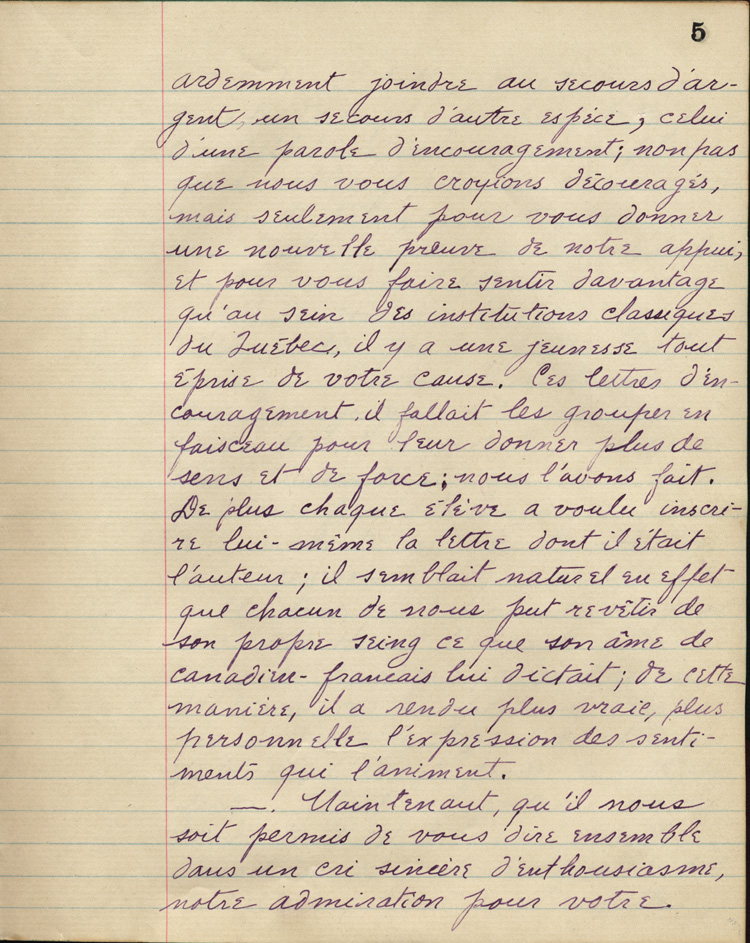 5
ardemment joindre au secours d'ar-
gent, un secours d'autre espèce, celui
d'une parole d'encouragement; non pas
que nous vous croyions découragés,
mais seulement pour vous donner
une nouvelle preuve de notre appui,
et pour vous faire sentir davantage
qu'au sein des institutions classiques
du Québec, il y a une jeunesse tout
éprise de votre cause. Ces lettres d'en-
couragement, il fallait les grouper en
faisceau pour leur donner plus de
sens et de force; nous l'avons fait.
De plus chaque élève a voulu inscri-
re lui-même la lettre dont il était
l'auteur; il semblait naturel en effet
que chacun de nous put revêtir de
son propre seing ce que son âme de
canadien-français lui dictait; de cette
manière, il a rendu plus vraie, plus
personnelle l'expression des senti-
ments qui l'animent.
—. Maintenant, qu'il nous
soit permis de vous dire ensemble
dans un cri sincère d'enthousiasme,
notre admiration pour votre.